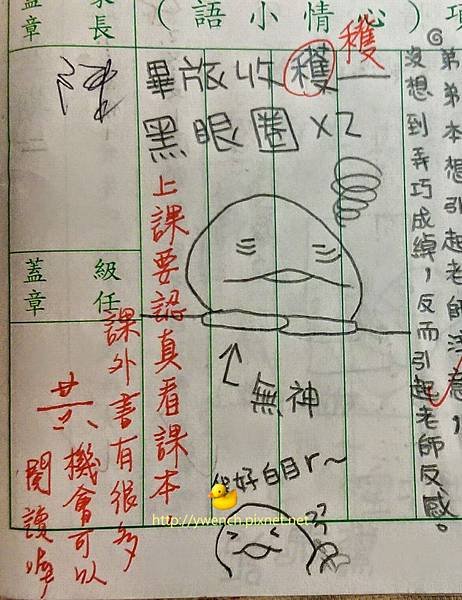 項（心情小語）
長
蓋章
級任
蓋章
弟弟本想引起老師注意，
沒想到弄巧成綽，反而引起老師反感。
穫
畢旅收穫—
黑眼圈 x2
無神
好白目r～
上課要認真看課本，
課外書有很多
機會可以
閱讀唷
http://ywencn.pixnet.net